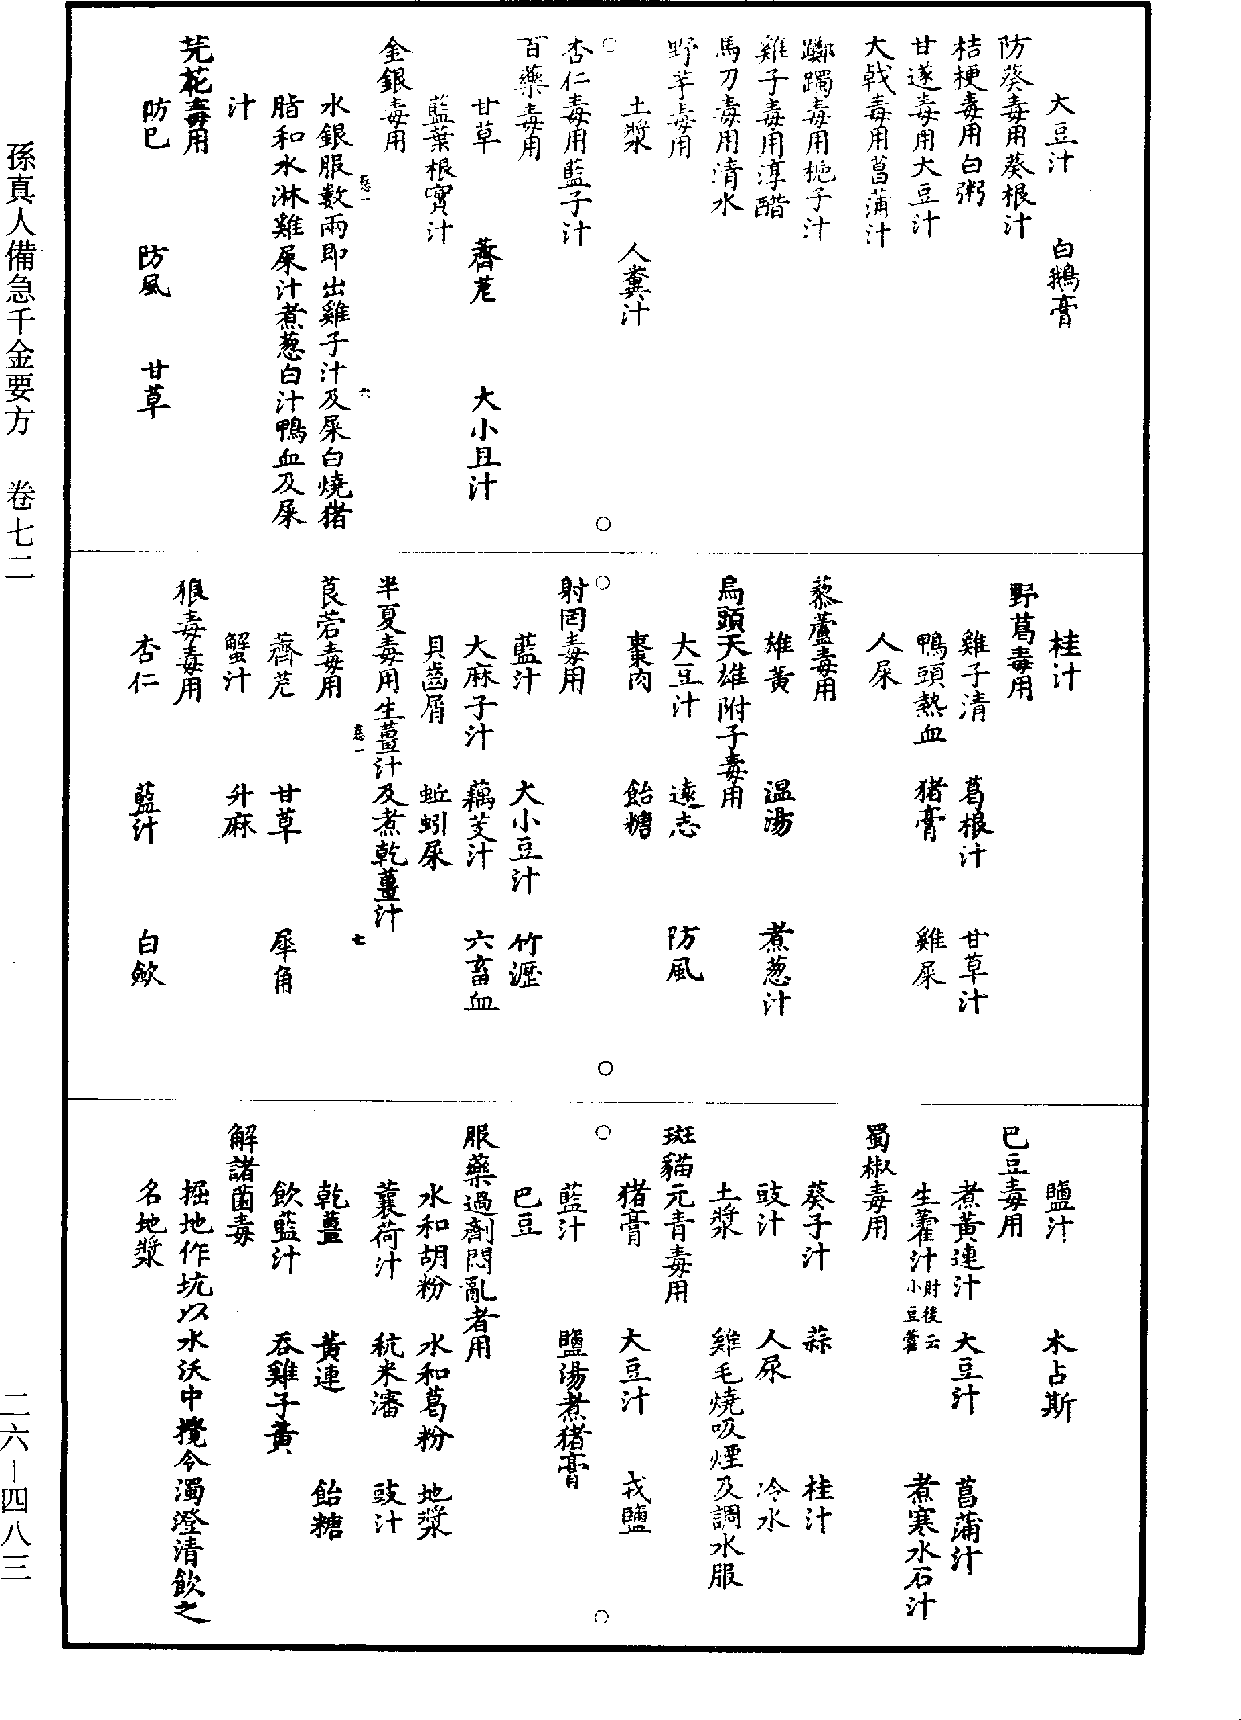 大豆汁　白鵝膏
防葵毒用葵根汁
桔梗毒用白粥
甘遂毒用大豆汁
大戟毒用菖蒲汁
躑躅毒用梔子汁
雞子毒用淳醋
馬刀毒用清水
野芋毒用
土漿　人糞汁
杏仁毒用藍子汁
百藥毒用
甘草　薺苨　大小且汁
藍葉根實汁
金銀毒用
水銀服數兩即出雞子汁及屎白燒猪
脂和水淋雞屎汁煮葱白汁鴨血及屎
汁
芫花毒用
防已　防風　甘草
桂汁
野葛毒用
雞子清　葛根汁　甘草汁
鴨頭熱血　猪膏　雞屎
人屎
藜蘆毒用
雄黃　温湯　煮葱汁
烏頭天雄附子毒用
大豆汁　遠志　防風
棗肉　飴糖
射罔毒用
藍汁　大小豆汁　竹瀝
大麻子汁　藕芰汁　六畜血
貝齒屑　蚯蚓屎
半夏毒用生薑汁及煮乾薑汁
莨菪毒用
薺苨　甘草　犀角
蟹汁　升麻
狼毒毒用
杏仁　藍汁　白歛
鹽汁　木占斯
巴豆毒用
煮黃連汁　大豆汁　菖蒲汁
生藿汁肘後云小豆藿　煮寒水石汁
蜀椒毒用
葵子汁　蒜　桂汁
豉汁　人尿　冷水
土漿　雞毛燒吸煙及調水服
斑猫元青毒用
猪膏　大豆汁　戎鹽
藍汁　鹽湯煮猪膏
巴豆
服藥過劑悶亂者用
水和胡粉　水和葛粉　地漿
蘘荷汁　秔米瀋　豉汁
乾薑　黃連　飴糖
飲藍汁　吞雞子黃
解諸菌毒
掘地作坑以水沃中攪令濁澄清飲之
名地漿
孫真人備急千金要方　卷七二
二六－四八三